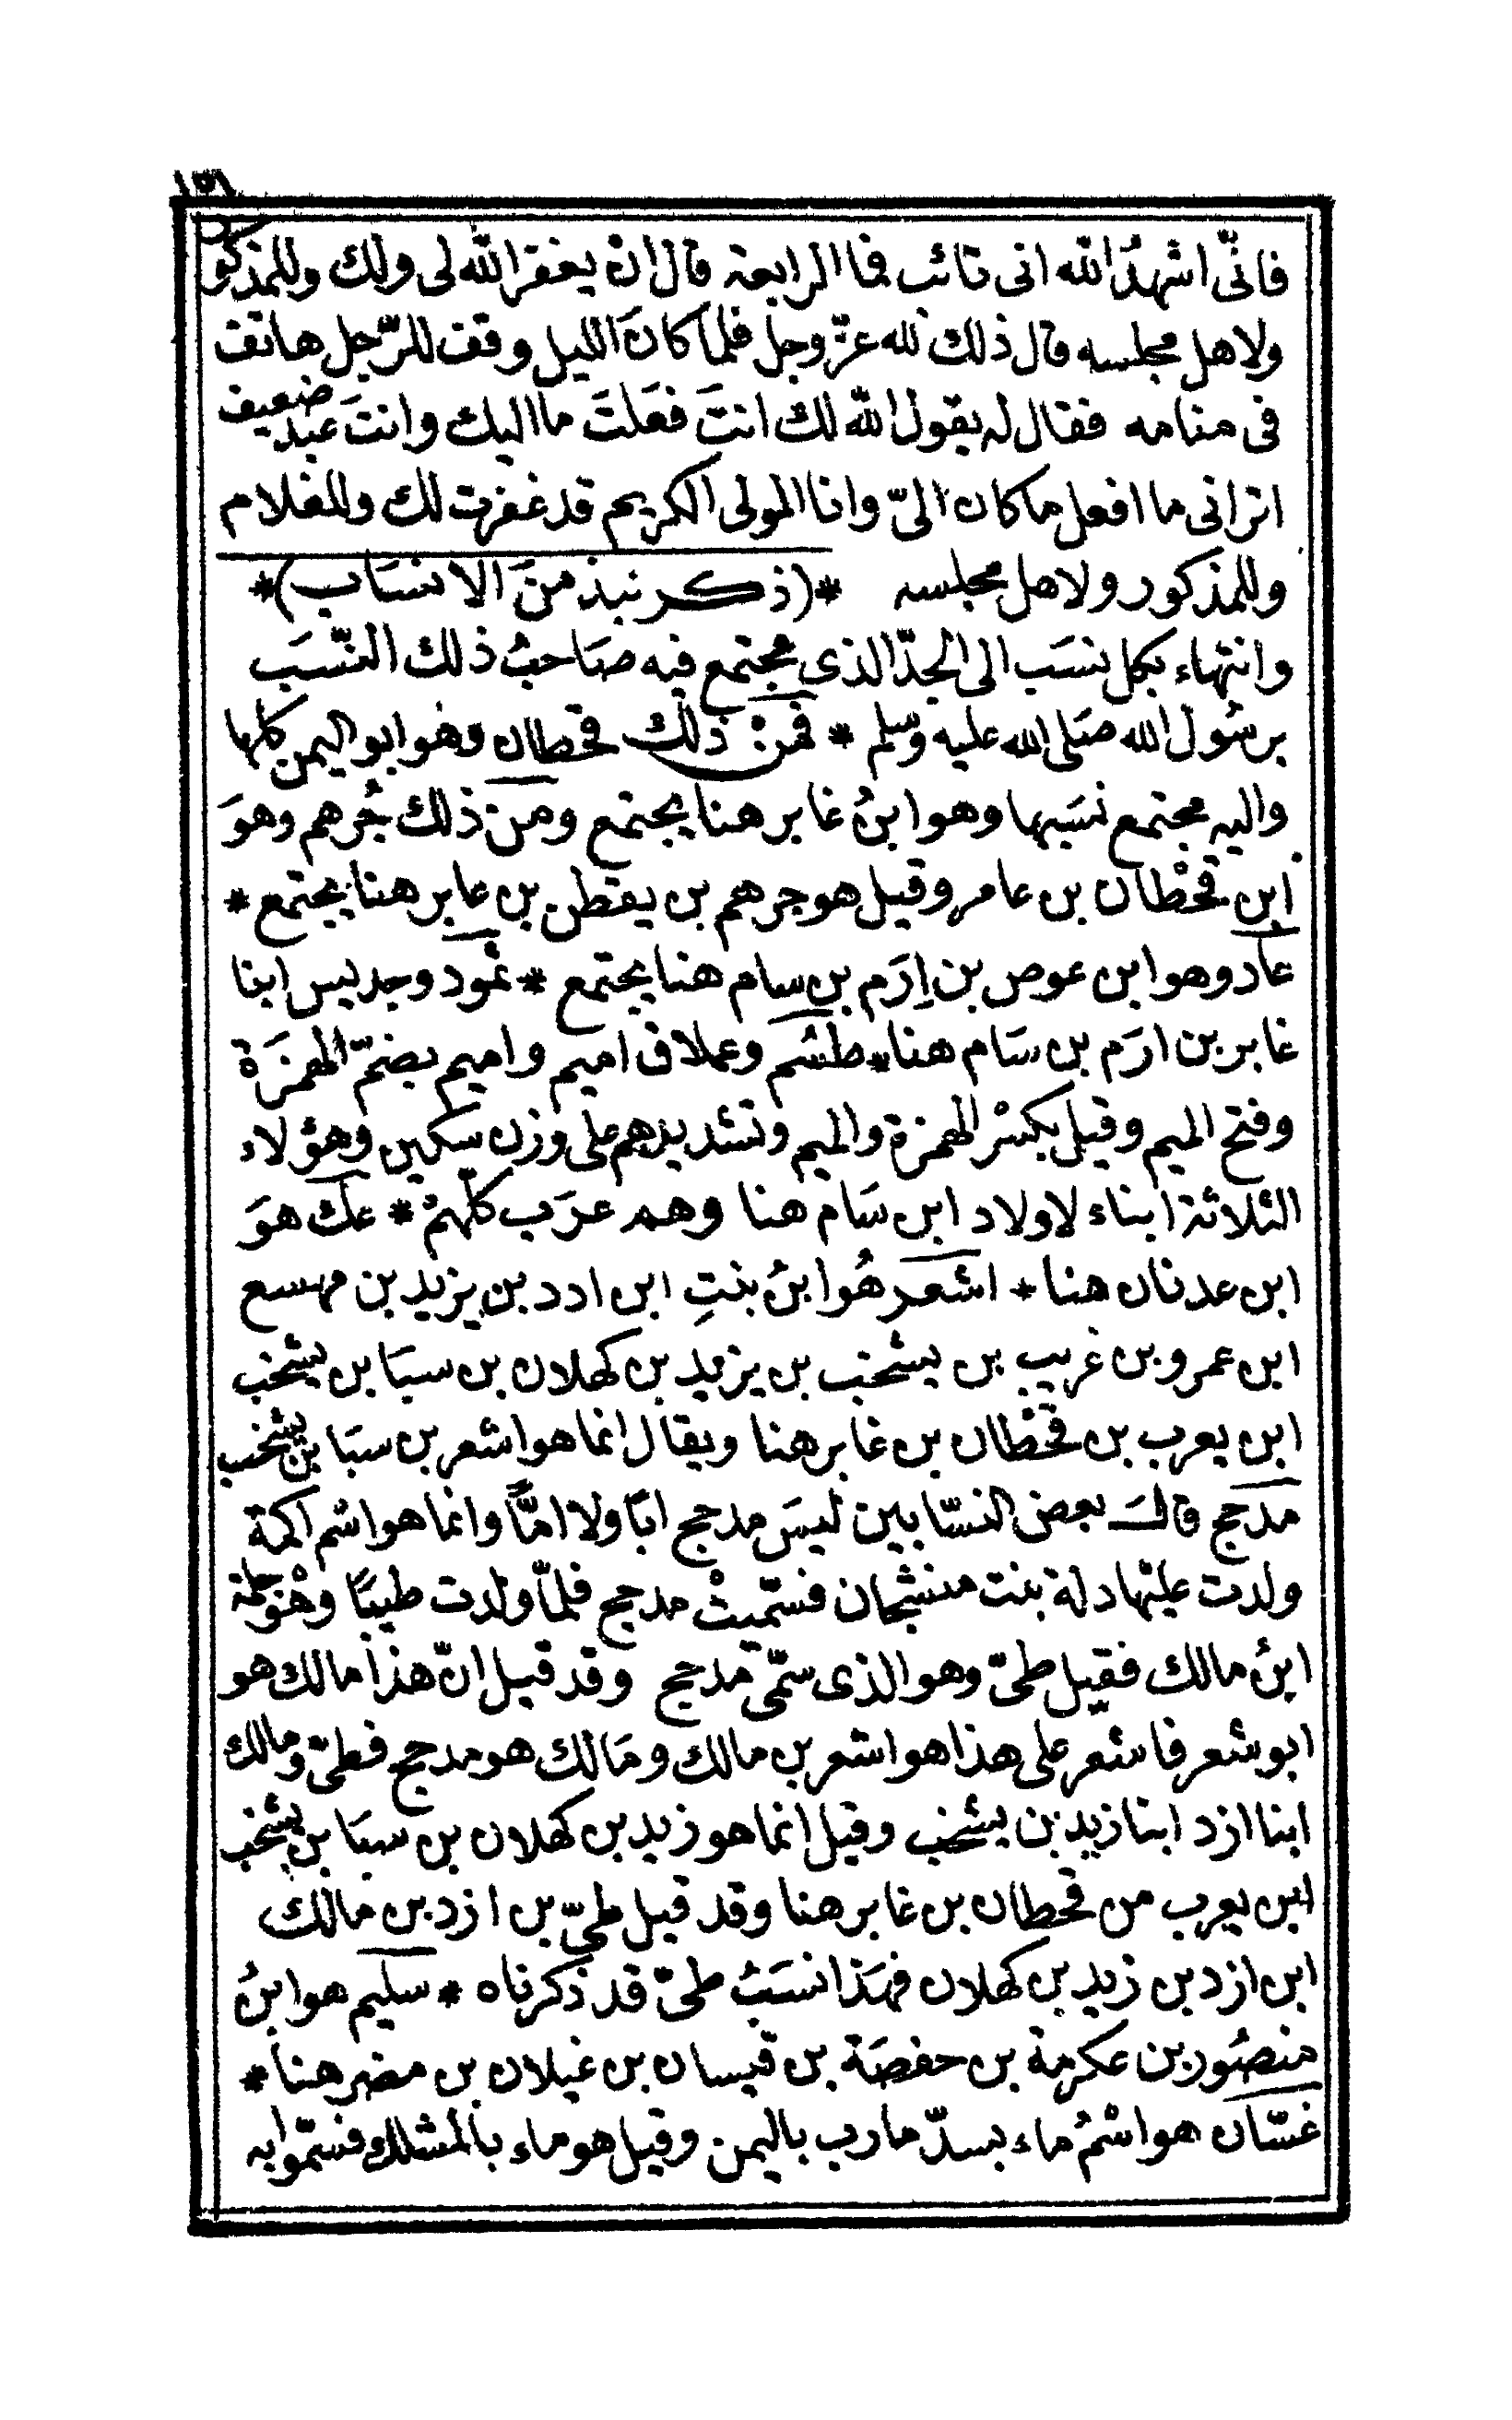 ١٥١
فانّى اشهدُ الله انى تائب فما الرابعة قال ان يغفر الله لى ولك وللمذكور
ولاهل مجلسه قال ذلك لله عزّ وجل فلما كانَ الليل وقف للرّجل هاتف
فى منامه فقال له يقول الله لك انتَ فعَلتَ ما اليك وانتَ عبد ضعيف
اترانى ما افعل ما كان الىّ وانا المولى الكريم قد غفرت لك وللغلام
وللمذكور ولاهل مجلسه *(ذكر نبذ منَ الانسَاب)*
وانتهاء بكل نسَب الى الجدّ الذى يجتمع فيه صَاحبُ ذلك النّسَب
برسُول الله صَلى الله عليه وسلم * فمنْ ذلك قحطان وهو ابو اليمن كلها
واليه يجتمع نسَبها وهو ابنُ غابر هنا يجتمع ومن ذلك جُرهم وهوَ
ابن قحْطان بن عامر وقيل هو جرهم بن يقطن بن عابر هنا يجتمع *
عاد وهو ابن عوص بن اِرَم بن سام هنا يجتمع * ثمود وجديس ابنا
غابر بن ارَم بن سَام هنا * طسْم وعملاق اميم واميم بضمّ الهمزَة
وفتح الميم وقيل بكسْر الهمزة والميم وتشديدهم على وزن سكين وهؤلاء
الثلاثة ابناء لاولاد ابن سَام هنا وهم عرَب كلّهمْ * عك هوَ
ابن عدنان هنا * اشعر هُو ابنُ بنتِ ابن ادد بن يزيد بن مهسع
ابن عمرو بن غريب بن يشخب بن يزيد بن كهلان بن سبَا بن يشخب
ابن يعرب بن قحْطان بن غابر هنا ويقال انما هو اشعر بن سبَا بن يشخب
مدحج قالَ بعض النسّابين ليسَ مدحج ابًا ولا امًّا وانما هو اسْم اكمة
ولدت عليْها دلة بنت منشجان فسمّيتْ مدحج فلمّا ولدت طيبًا وهْوَ جلمة
ابنُ مالك فقيل طىّ وهو الذى سمّى مدحج وقد قيل انّ هذا مالك هو
ابو شعر فاشعر على هذا هو اشعر بن مالك ومَالك هو مدحج فطىّ ومالك
ابنا ازد ابنا زيد بن يشخب وقيل انما هو زيد بن كهلان بن سبَا بن يشخب
ابن يعرب من قحطان بن غابر هنا وقد قيل طىّ بن ازد بن مالك
ابن ازد بن زيد بن كهلان فهَذا نسَبُ طىّ قد ذكرناه * سليم هو ابنُ
منصُور بن عكرمة بن حفصَة بن قيسان بن غيلان بن مضر هنا *
غسّان هو اسْمُ ماء بسدّ مارب باليمن وقيل هو ماء بالمشلك فسمّوا به